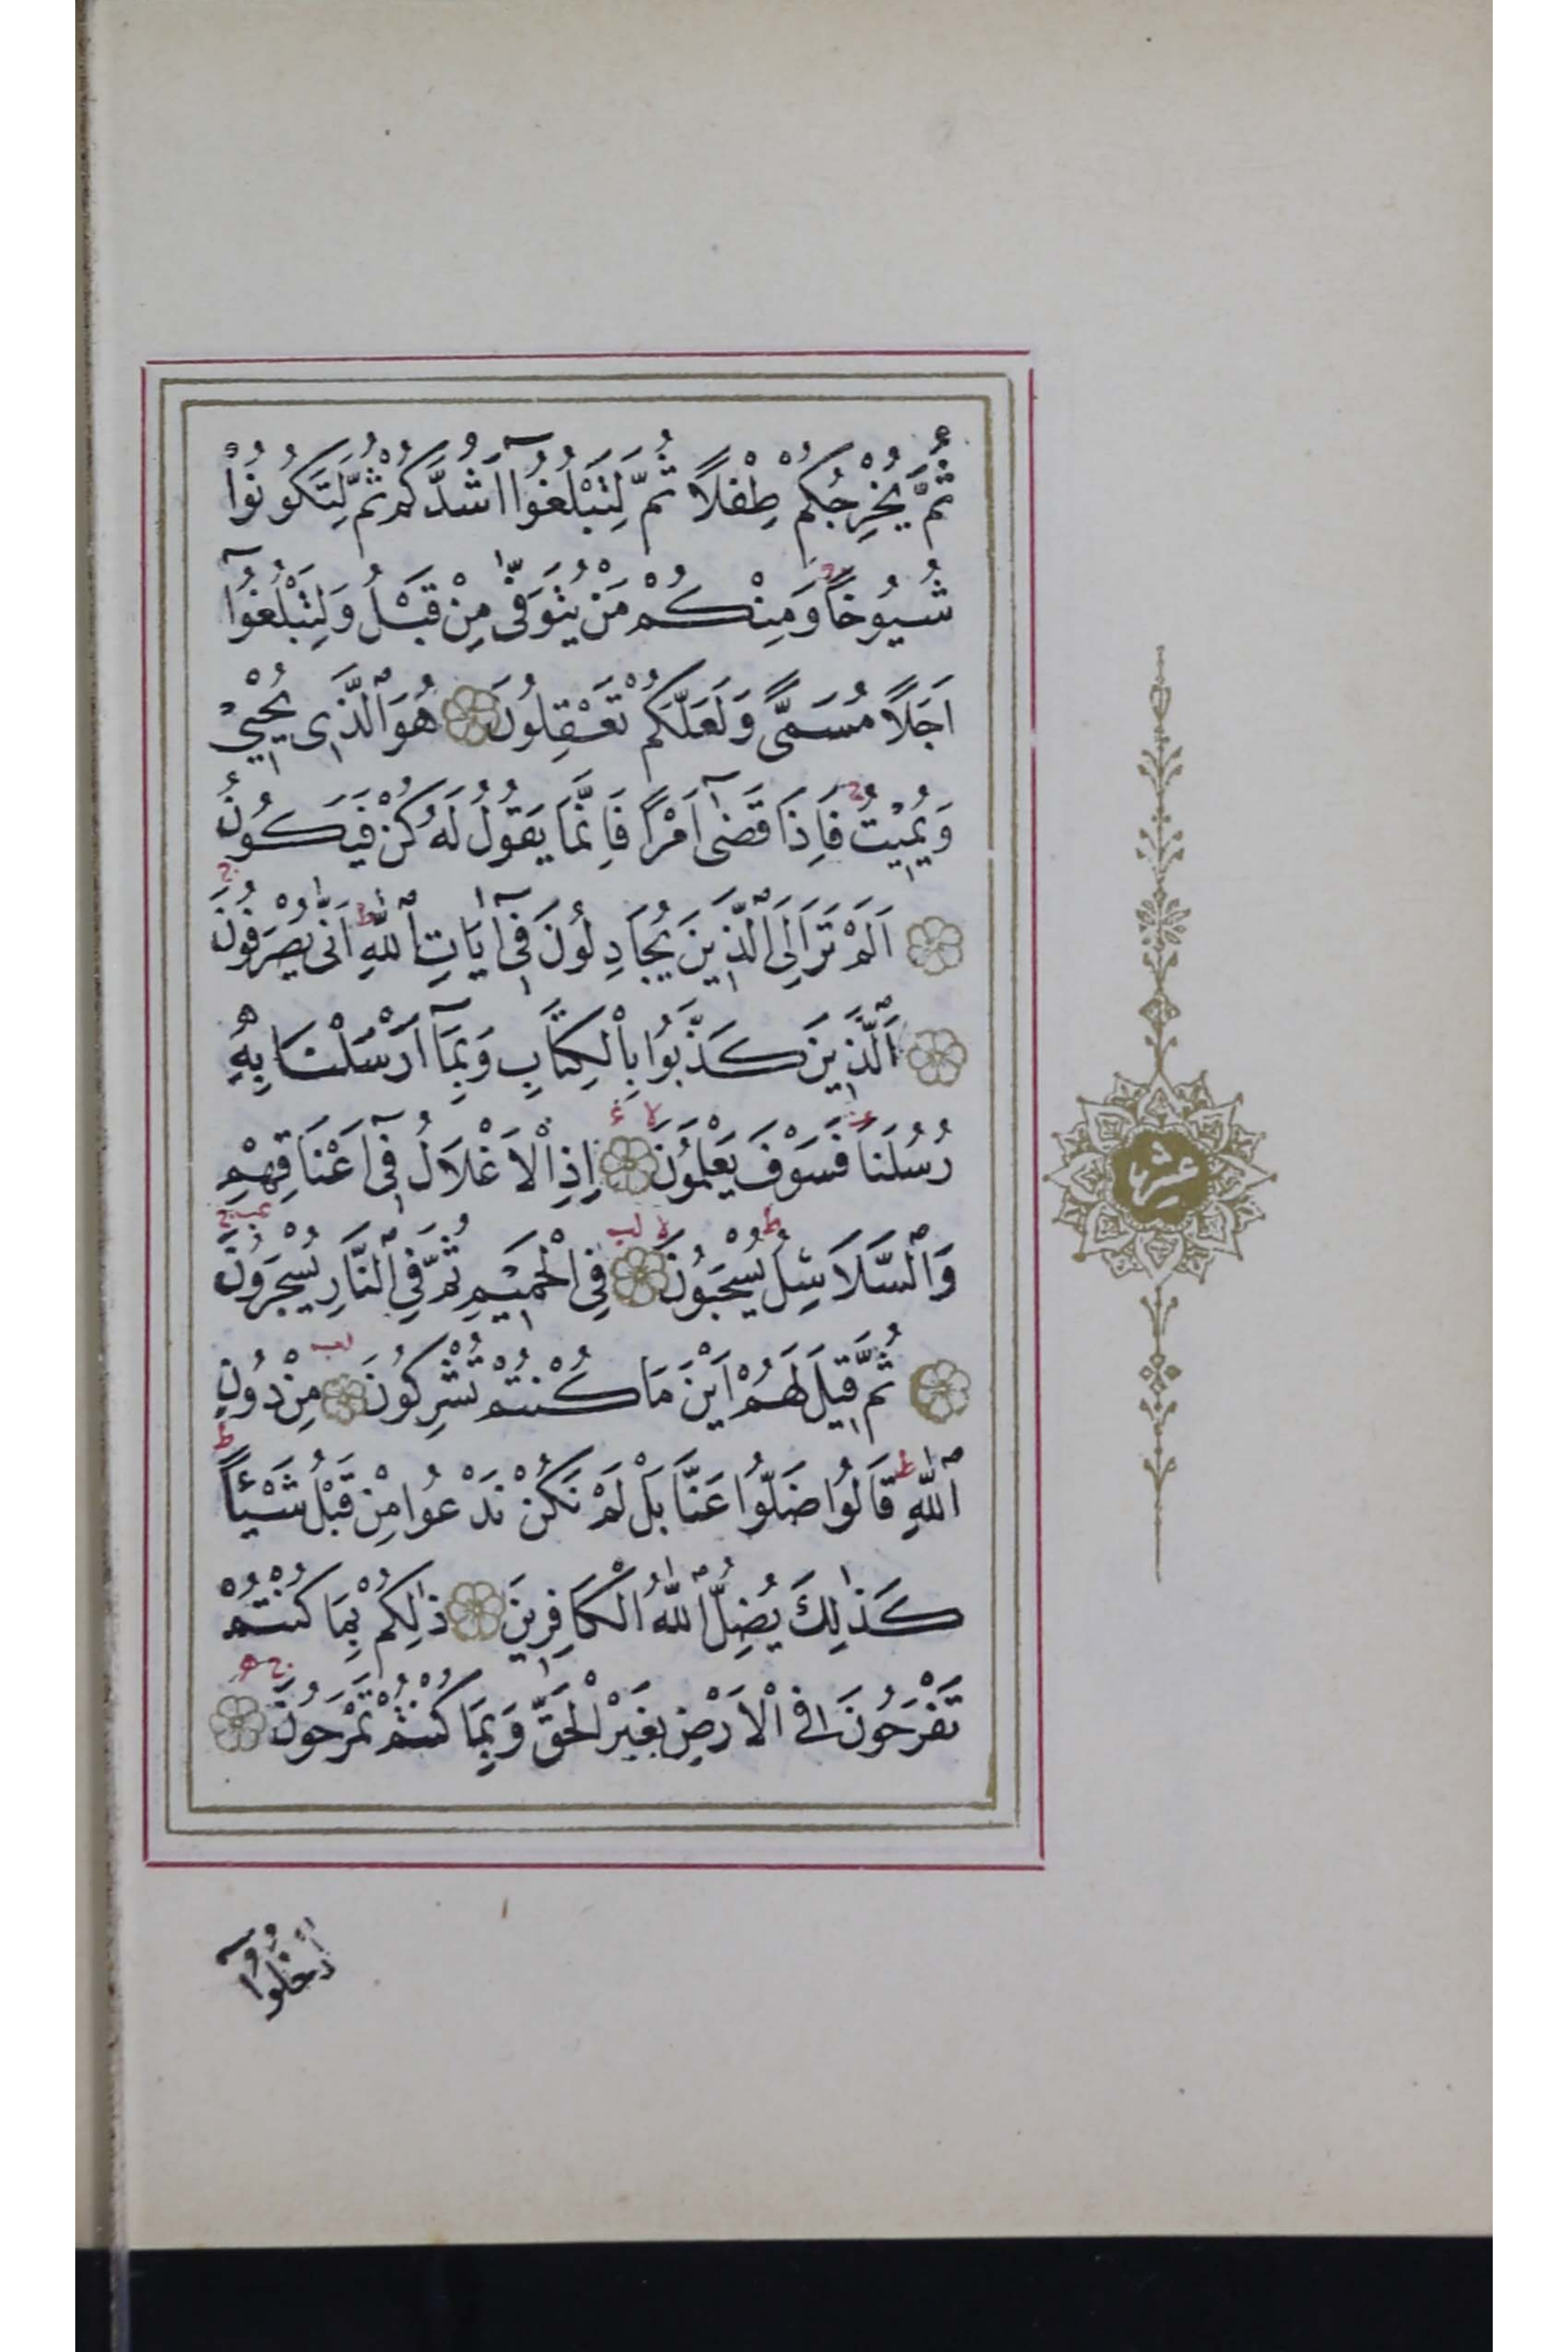 ثُمَّ يُخْرِجُكُمْ طِفْلًا ثُمَّ لِتَبْلُغُوٓا اَشُدَّكُمْ ثُمَّ لِتَكُونُوا
شُيُوخًا وَمِنْكُمْ مَنْ يُتَوَفّٰى مِنْ قَبْلُ وَلِتَبْلُغُوٓا
اَجَلًا مُسَمًّى وَلَعَلَّكُمْ تَعْقِلُونَ هُوَ الَّذِى يُحْيِى
وَيُمِيتُ فَاِذَا قَضٰٓى اَمْرًا فَاِنَّمَا يَقُولُ لَهُ كُنْ فَيَكُونُ
اَلَمْ تَرَ اِلَى الَّذِينَ يُجَادِلُونَ فِىٓ اٰيَاتِ اللّٰهِ اَنّٰى يُصْرَفُونَ
اَلَّذِينَ كَذَّبُوا بِالْكِتَابِ وَبِمَٓا اَرْسَلْنَا بِهِ
رُسُلَنَا فَسَوْفَ يَعْلَمُونَ اِذِ الْاَغْلَالُ فِىٓ اَعْنَاقِهِمْ
وَالسَّلَاسِلُ يُسْحَبُونَ فِى الْحَمِيمِ ثُمَّ فِى النَّارِ يُسْجَرُونَ
ثُمَّ قِيلَ لَهُمْ اَيْنَ مَا كُنْتُمْ تُشْرِكُونَ مِنْ دُونِ
اللّٰهِ قَالُوا ضَلُّوا عَنَّا بَلْ لَمْ نَكُنْ نَدْعُوا مِنْ قَبْلُ شَيْئًا
كَذٰلِكَ يُضِلُّ اللّٰهُ الْكَافِرِينَ ذٰلِكُمْ بِمَا كُنْتُمْ
تَفْرَحُونَ فِى الْاَرْضِ بِغَيْرِ الْحَقِّ وَبِمَا كُنْتُمْ تَمْرَحُونَ
عشر
اُدْخُلُوٓا